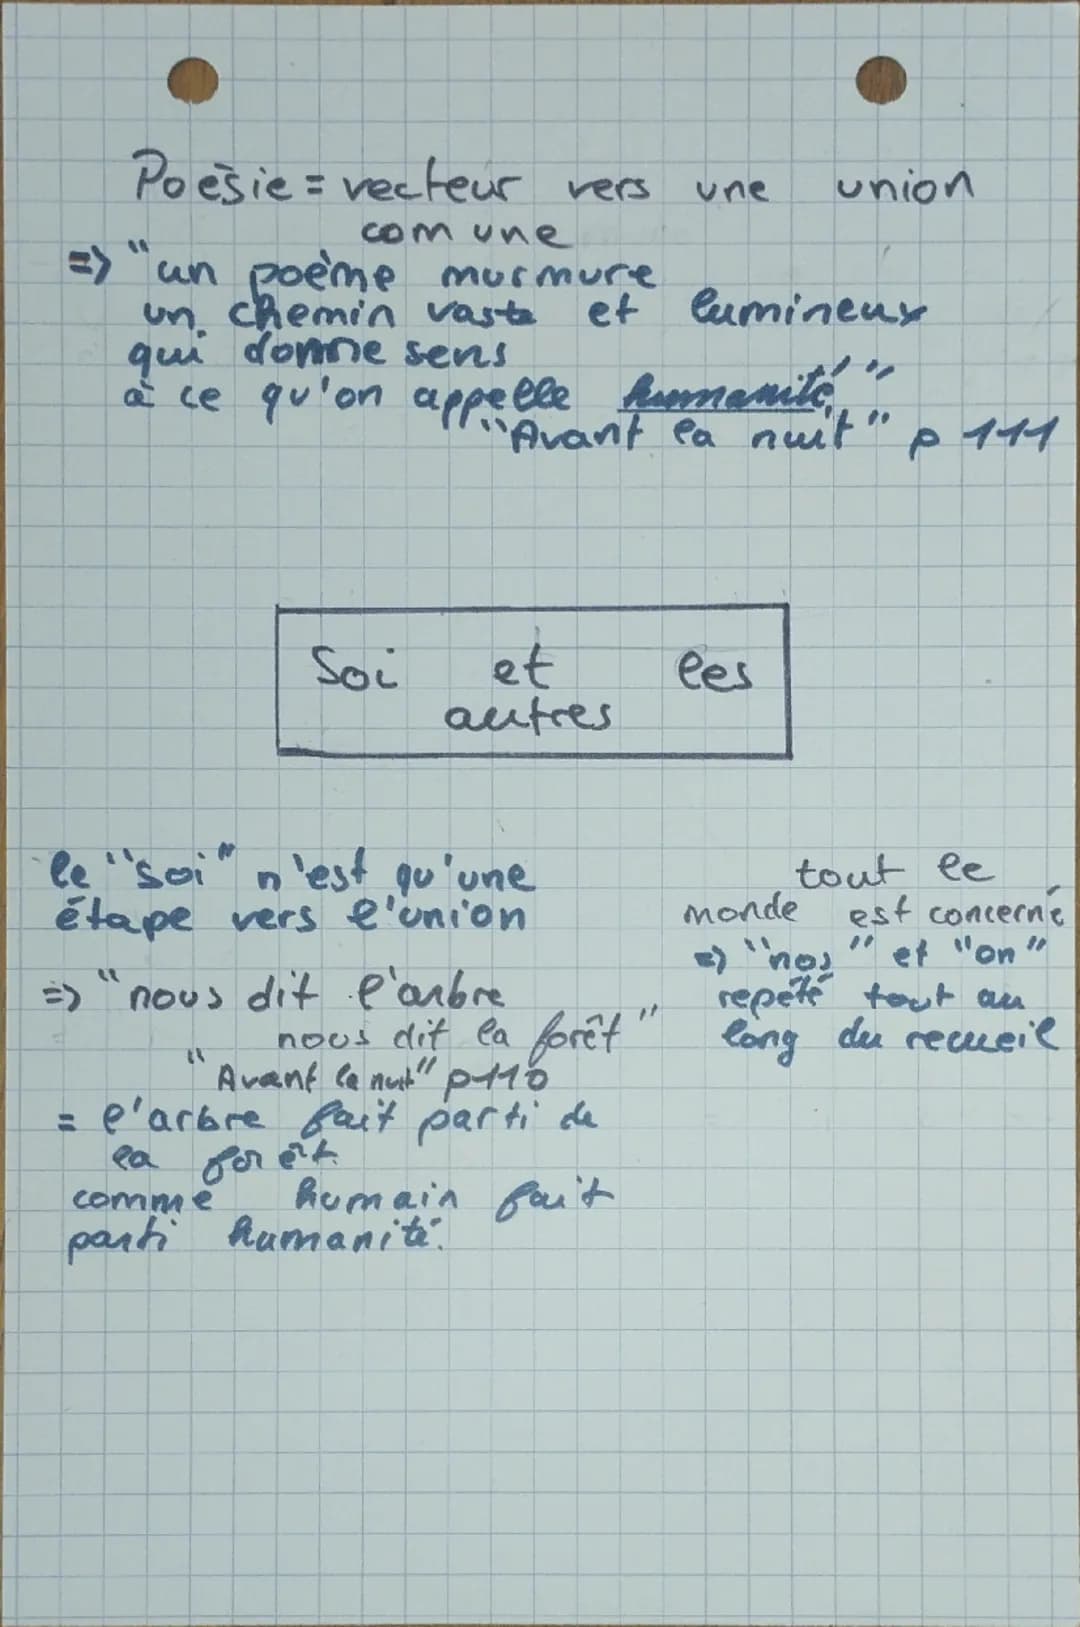 Poésie = vecteur vers une union
comune
=> "un poème murmure
un chemin vaste et lumineux
qui donne sens
à ce qu'on appelle humanité"
"Avant la nuit" p 111
Soi et les
autres
le "soi" n'est qu'une
étape vers l'union
=> "nous dit l'arbre
nous dit la forêt"
"Avant la nuit" p110
= l'arbre fait parti de
la forêt
comme humain fait
parti humanité.
tout le
monde est concerné
=> "nos" et "on"
repété tout au
long du recueil